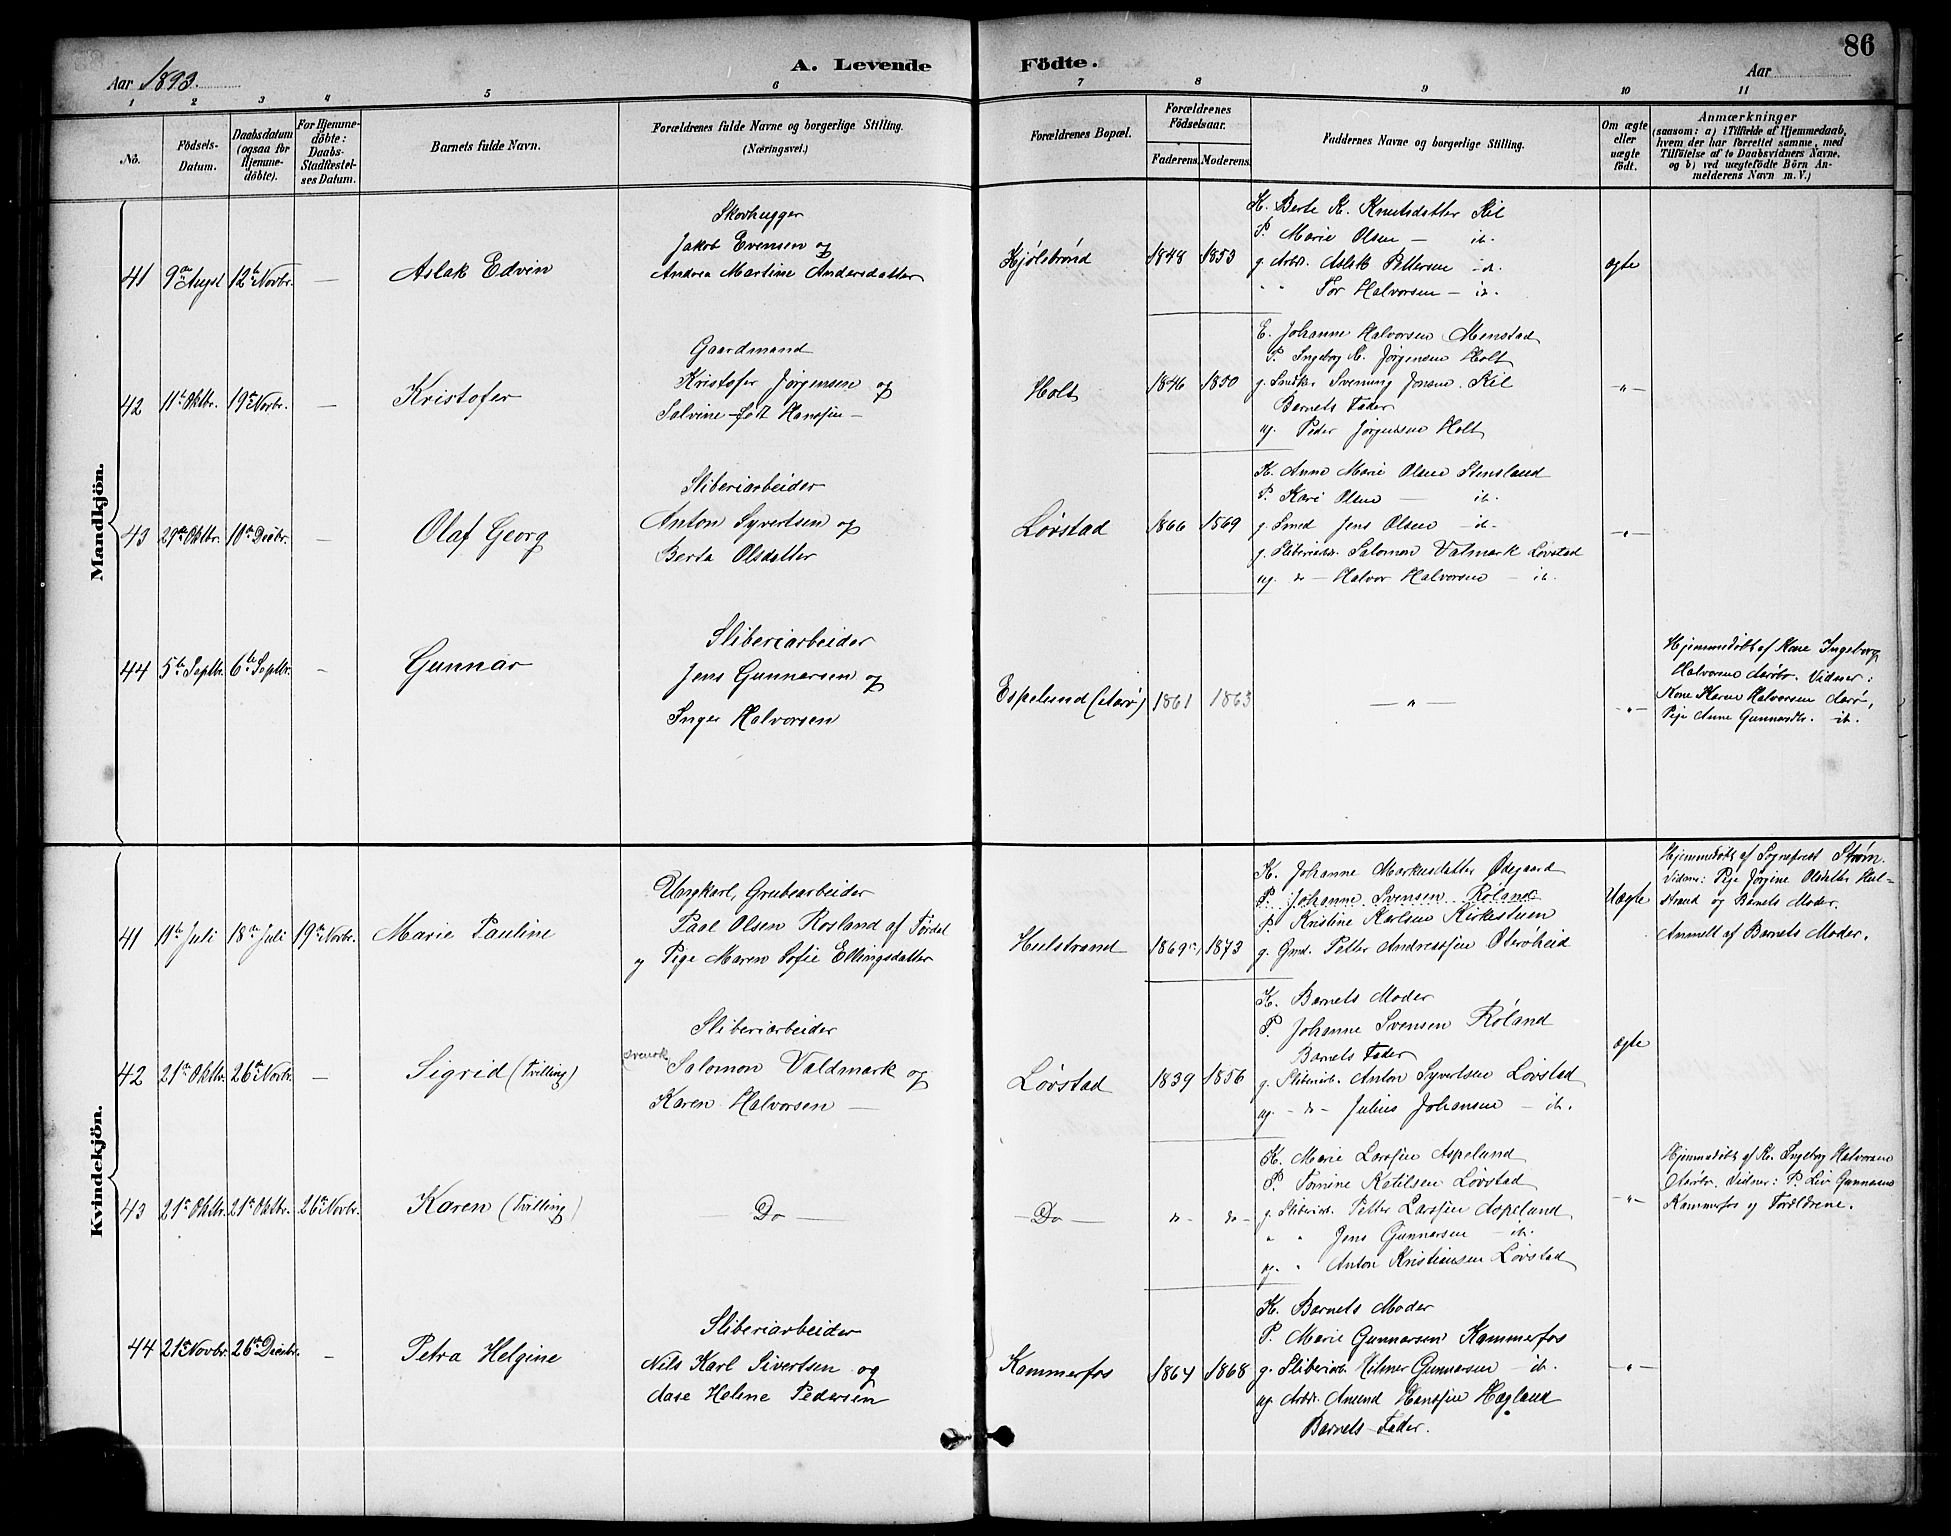 86
Aar 1893.
A. Levende Födte.
Aar
1 2 3 4 5 6 7 8 9 10 11
No.
Födsels-Datum.
Daabsdatum (ogsaa for Hjemmedöbte).
For Hjemmedöbte: Daabs-Stadfæstelses Datum.
Barnets fulde Navn.
Forældrenes fulde Navne og borgerlige Stilling.
(Næringsvei.)
Forældrenes Bopæl.
Forældrenes Födselsaar.
Faderens. Moderens.
Faddernes Navne og borgerlige Stilling.
Om ægte eller uægte födt.
Anmærkninger
(saasom: a) i Tilfælde af Hjemmedaab,
hvem der har forrettet samme, med
Tilföielse af to Daabsvidners Navne,
og b) ved uægtefödte Börn An-
melderens Navn m. V.)
Mandkjön.
41 9de Augst 12te Novbr. — Aslak Edvin
Skovhugger
Jakob Evensen og
Andrea Martine Andersdatter
Kjølebrønd 1848 1853
K. Berte K. Knutsdatter Kil
P. Marie Olsen — ib.
g. Arbd. Aslak Pettersen — ib.
" " Tor Halvorsen — ib.
ægte
42 11te Oktbr. 19de Novbr. — Kristofer
Gaardmand
Kristofer Jørgensen og
Salvine født Hanssen —
Holt 1846 1850
E. Johanne Halvorsen Menstad
P. Ingeborg K. Jørgensen Holt
g. Snedkr. Svenung Jonsen Kil
Barnets Fader
ug. Peder Jørgensen Holt
—"—
43 29de Oktbr. 10de Decbr. — Olaf Georg
Sliberiarbeider
Anton Syvertsen og
Berta Olsdatter
Løvstad 1866 1569
K. Anne Marie Olsen Stensland
P. Kari Olsen — ib.
g. Smed Jens Olsen — ib.
g. Sliberiarb. Salomon Valmark Løvstad
ug. do — Halvor Halvorsen — ib.
—"—
44 5te Septbr. 6te Septbr. — Gunnar
Sliberiarbeider
Jens Gunnarsen og
Inger Halvorsen
Espelund (Aarø) 1861 1863
— " —
—"—
Hjemmedøbt af Kone Ingeborg
Halvorsen Aarø. Vidner:
Kone Karen Halvorsen Aarø,
Pige Anne Gunnarsdtr. ib.
Kvindekjön.
41 11te Juli 18de Juli 19de Novbr. Marie Pauline
Ungkarl, Grubearbeider
Paal Olsen Rosland af Tørdal
og Pige Maren Sofie Ellingsdatter
Hulstrand 1869 1873
K. Johanne Markusdatter Ødegaard
P. Johanne Svensen Roland
P. Kristine Karlsen Kirkestuen
g. Gmd. Petter Andreassen Oterøheid
Uægte
Hjemmedøbt af Sogneprest Strøm.
Vidner: Pige Jørgine Olsdatter Hul-
strand og Barnets Moder.
Anmeldt af Barnets Moder.
42 21de Oktbr. 26de Novbr. — Sigrid (Tvilling)
Sliberiarbeider
svensk Salomon Valdmark og
Karen Halvorsen —
Løvstad 1839 1856
K. Barnets Moder
P. Johanne Svensen Røland
Barnets Fader
g. Sliberiarb. Anton Syvertsen Løvstad
ug. — do — Julius Johansen — ib.
ægte
43 21de Oktbr. 21de Oktbr. 26de Novbr. Karen (Tvilling)
— Do —
— Do — do — do —
K. Marie Larssen Aspelund
P. Tomine Ketilsen Løvstad
g. Sliberiarb. Petter Larssen Aspelund
" " Jens Gunnarsen — ib.
ug. " Anton Kristiansen Løvstad
—"—
Hjemmedøbt af K. Ingeborg Halvorsen
Aarø. Vidner: P. Liv Gunnarsen
Kammerfos og Forældrene.
44 21de Novbr. 26de Decbr. — Petra Helgine
Sliberiarbeider
Nils Karl Sivertsen og
Aase Helene Pedersen
Kammerfos 1864 1868
K. Barnets Moder
P. Marie Gunnarsen Kammerfos
g. Sliberiarb. Hilmer Gunnarsen — ib.
ug. Arbdr. Amund Hanssen Hægland
Barnets Fader.
—"—